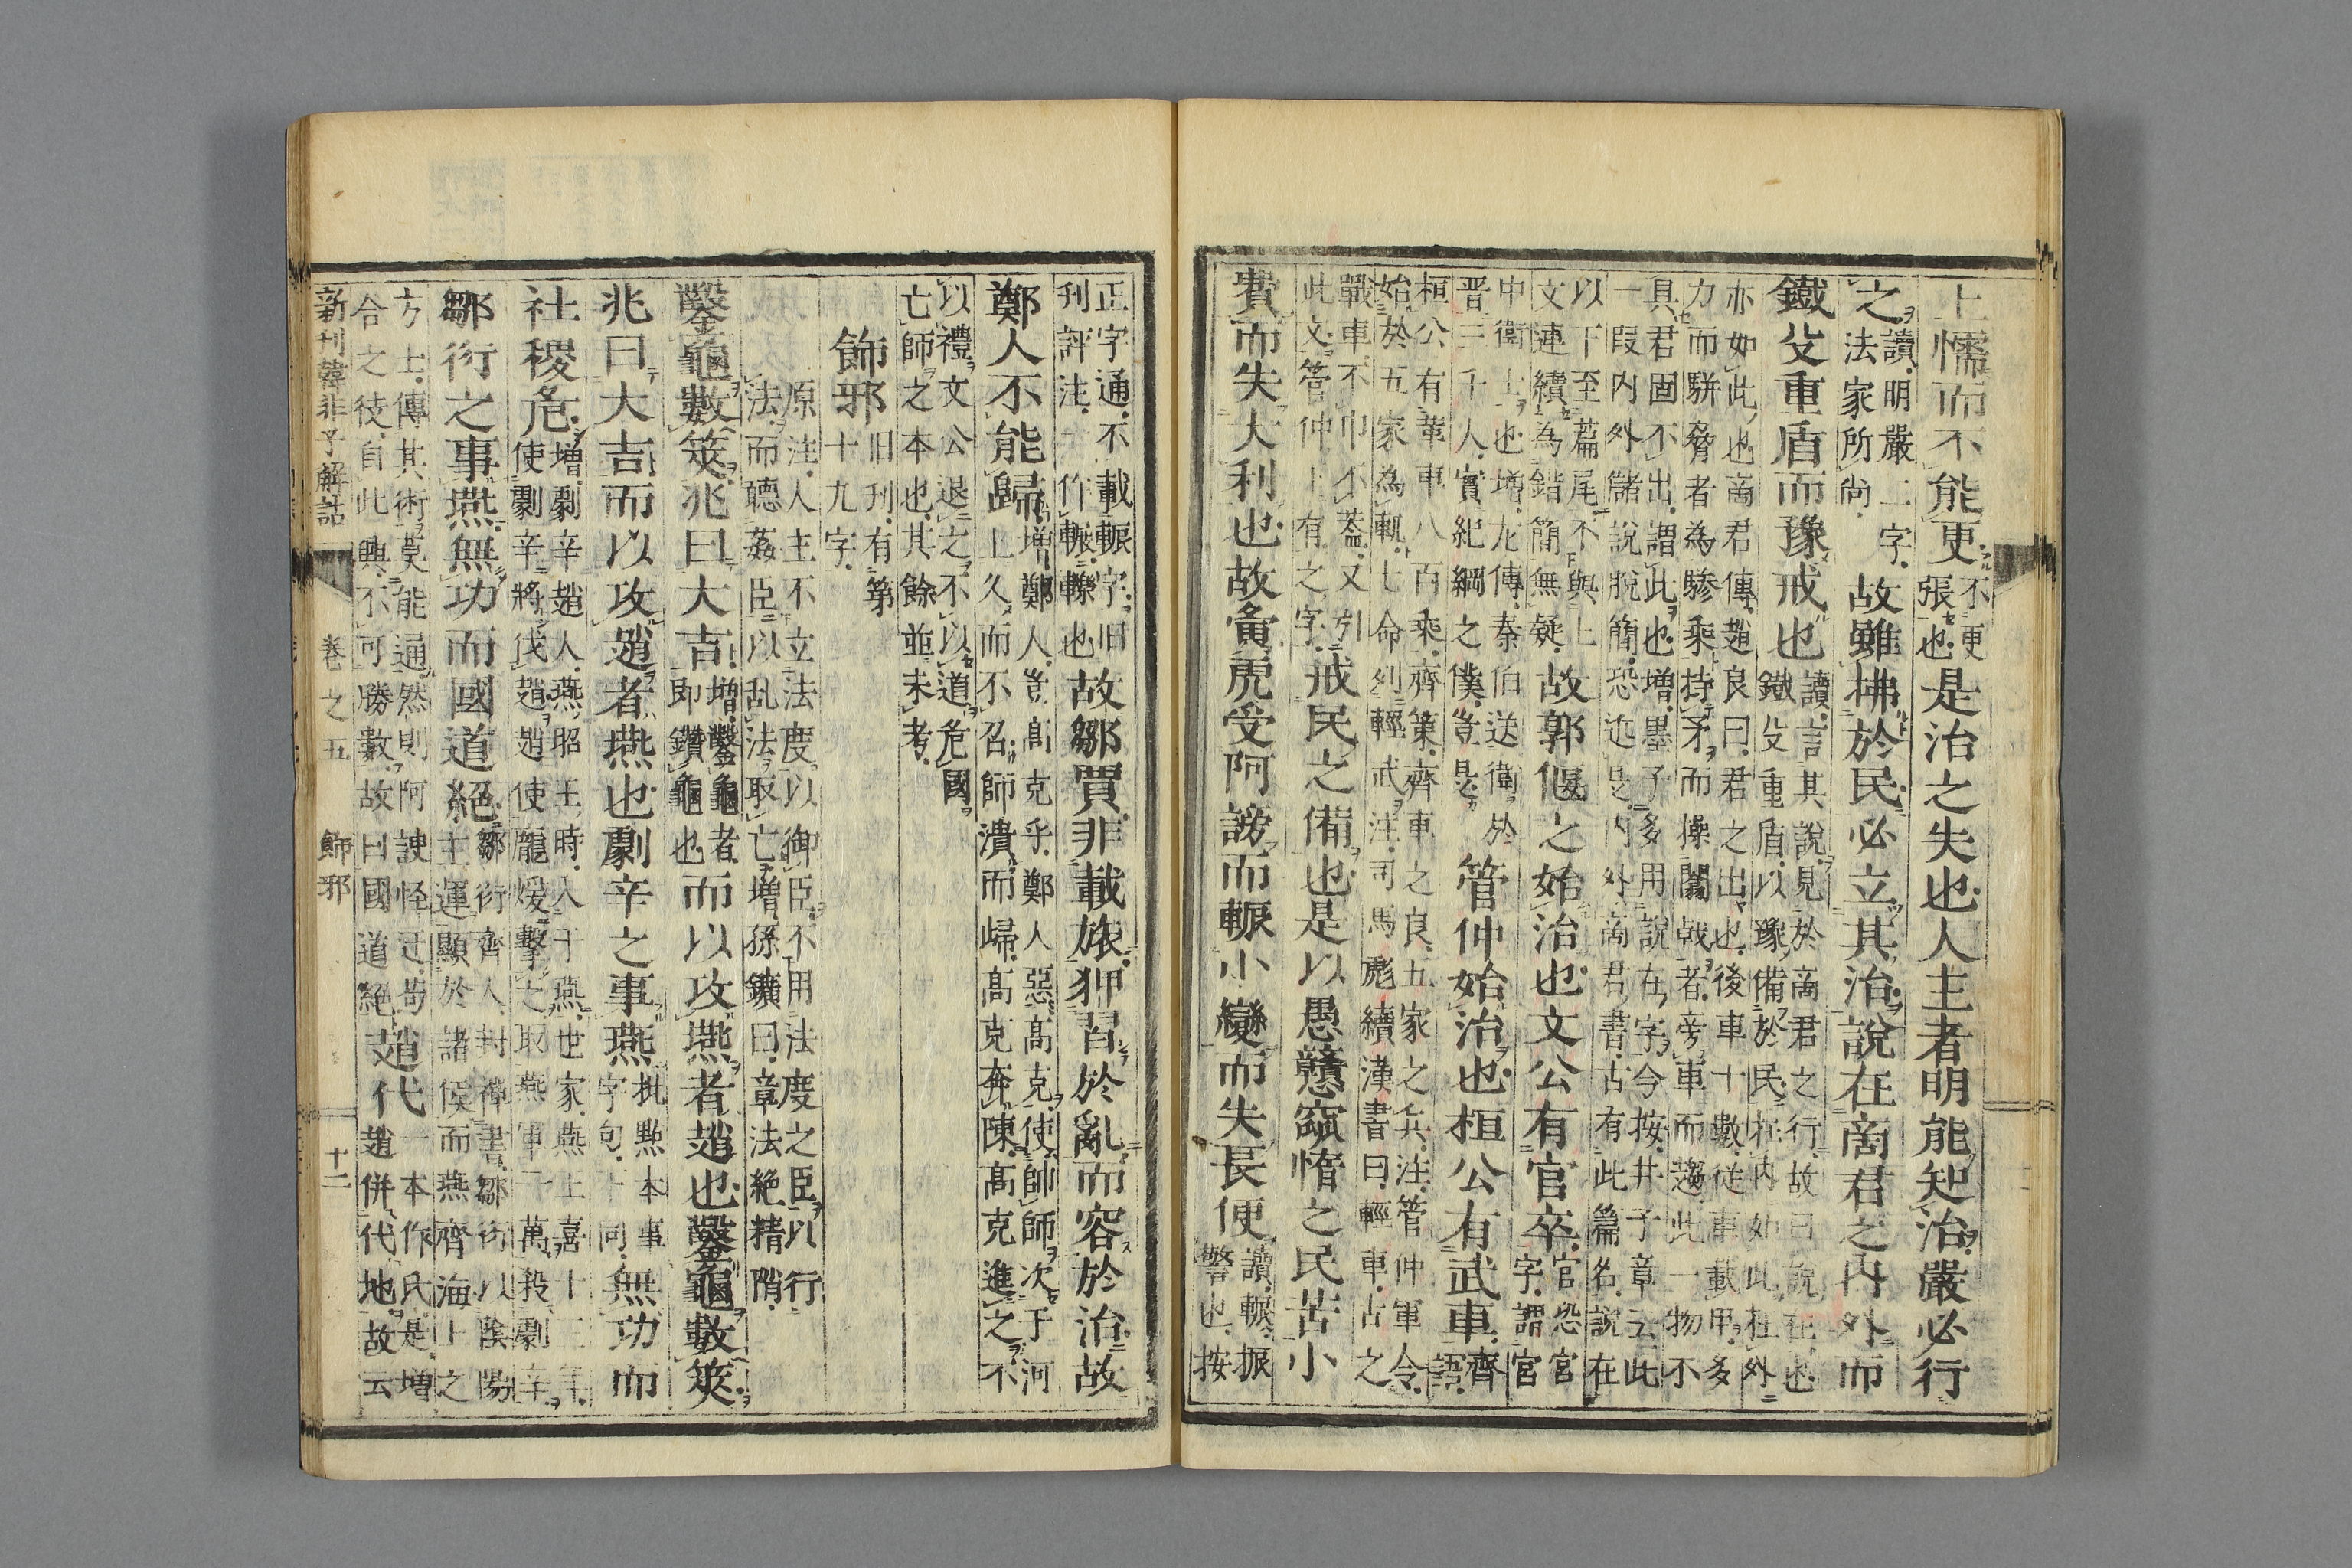 上懦而不能更不更張也是治之失也人主者明能知治嚴必行
之讀明嚴二字法家所尚故雖拂於民必立其治說在商君之內外而
鐵殳重盾而豫戒也讀言其說見於商君之行故曰說在也鐵殳重盾以豫備於民在內如此在外
亦如此也商君傳趙良曰君之出也後車十數從車載甲多力而駢脅者為驂乘持矛而操闟戟者旁車而趨此一物不
具君固不出謂此也增墨子多用說在字今按井子章云此一叚內外儲說脫簡恐迄是內外商君書古有此篇名說在
以下至篇尾不與上文連續為錯簡無疑故郭偃之始治也文公有官卒官恐宮字謂宮
中衛士也增尤傳秦伯送衛於晋三千人實紀綱之僕豈是管仲始治也桓公有武車齊語
桓公有革車八百乘齊策齊車之良五家之兵注管仲軍令始於五家為軌七命列輕武注司馬彪續漢書曰輕車古之
戰車不巾不蓋又引此文管仲上有之字戒民之備也是以愚戇窳惰之民苦小
費而失大利也故夤虎受阿謗而輾小變而失長便讀輾振警也按
正字通不載輾字旧刊評注作轏轢也故鄒賈非載旅狎習於亂而容於治故
鄭人不能歸增鄭人豈高克乎鄭人惡高克使帥師次于河上久而不召師潰而歸高克奔陳高克進之不
以禮文公退之不以道危國亡師之本也其餘並未考
飾邪旧刊有第十九字
原注人主不立法度以御臣不用法度之臣以行法而聽姦臣以乱法取亡增孫鑛曰章法絕精階
鑿龜數筴兆曰大吉增鑿龜者即鑽龜也而以攻燕者趙也鑿龜數筴
兆曰大吉而以攻趙者燕也劇辛之事燕批點本事字句下同無功而
社稷危增劇辛趙人燕昭王時入于燕世家燕王喜十二年使劇辛將伐趙趙使龐煖擊之取燕軍二萬殺劇辛
鄒衍之事燕無功而國道絕鄒衍齊人封禪書鄒衍以陰陽主運顯於諸侯而燕齊海上之
方士傳其術莫能通然則阿諛怪迂苟合之徒自此興不可勝數故曰國道絕趙代一本作氏是增趙併代地故云
新刊韓非子解詁 卷之五 飾邪 十二